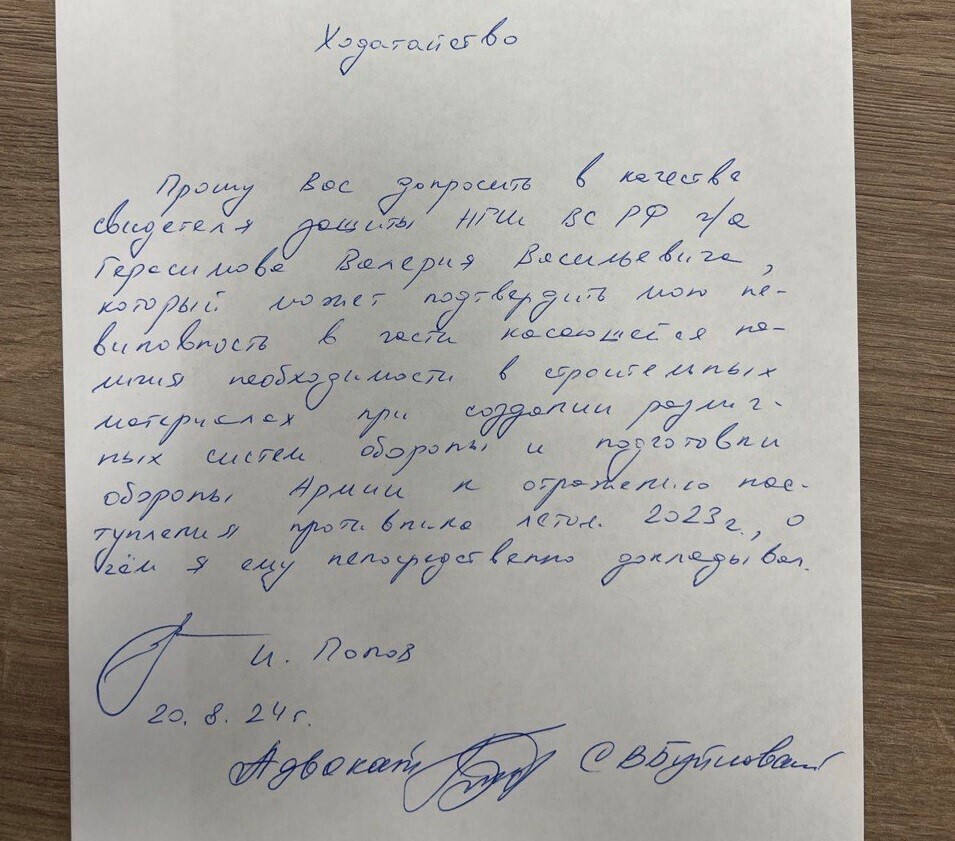 Ходатайство
Прошу Вас допросить в качестве
свидетеля защиты НГШ ВС РФ г/а
Герасимова Валерия Васильевича,
который может подтвердить мою не-
виновность в части касающейся на-
личия необходимости в строительных
материалах при создании различ-
ных систем обороны и подготовки
обороны Армии к отражению нас-
тупления противника летом 2023г., о
чём я ему непосредственно докладывал.
И. Попов
20. 8. 24 г.
Адвокат С В